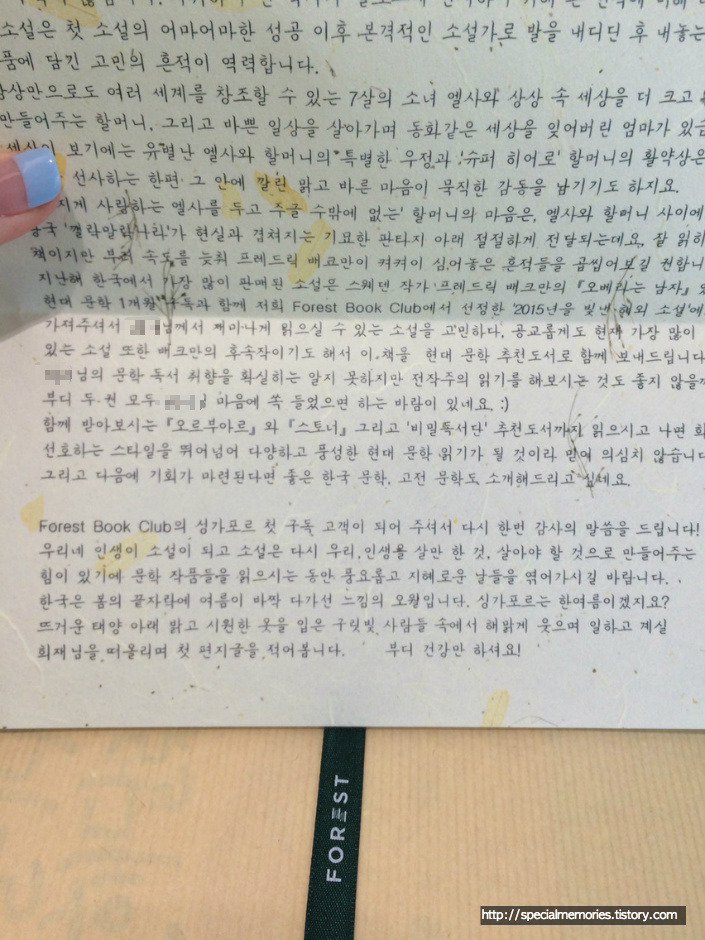 소설은 첫 소설의 어마어마한 성공 이후 본격적인 소설가로 발을 내디딘 후 내놓는
품에 담긴 고민의 흔적이 역력합니다.
상만으로도 여러 세계를 창조할 수 있는 7살의 소녀 엘사와 상상 속 세상을 더 크고
만들어주는 할머니, 그리고 바쁜 일상을 살아가며 동화같은 세상을 잊어버린 엄마가
세상이 보기에는 유별난 엘사와 할머니의 특별한 우정과 '슈퍼 히어로' 할머니의 활약상은
선사하는 한편 그 안에 깔린 맑고 바른 마음이 묵직한 감동을 남기기도 하지요.
사랑하는 엘사를 두고 수밖에 없는' 할머니의 마음은, 엘사와 할머니 사이에
현실과 겹쳐지는 기묘한 판타지 아래 절절하게 전달되는데요, 잘 읽히
책이지만 부러 속도를 늦춰 프레드릭 배크만이 켜켜이 심어놓은 흔적들을 곱씹어보길 권합니
지난해 한국에서 가장 많이 판매된 소설은 스웨덴 작가 프레드릭 배크만의 『오베라는 남자』
현대 문학 1개월 구독과 함께 저희 Forest Book Club에서 선정한 '2015년을 빛낸 해외 소설'에
가져주셔서 님께서 재미나게 읽으실 수 있는 소설을 고민하다, 공교롭게도 현재 가장 많이
있는 소설 또한 배크만의 후속작이기도 해서 이 책을 현대 문학 추천도서로 함께 보내드립니다
님의 문학 독서 취향을 확실히는 알지 못하지만 전작주의 읽기를 해보시는 것도 좋지 않을까
부디 두 권 모두 마음에 쏙 들었으면 하는 바람이 있네요. :)
함께 받아보시는 『오르부아르』와 『스토너』 그리고 '비밀독서단' 추천도서까지 읽으시고 나면
선호하는 스타일을 뛰어넘어 다양하고 풍성한 현대 문학 읽기가 될 것이라 믿어 의심치 않습니다
그리고 다음에 기회가 마련된다면 좋은 한국 문학, 고전 문학도 소개해드리고 싶네요.
Forest Book Club의 싱가포르 첫 구독 고객이 되어 주셔서 다시 한번 감사의 말씀을 드립니다!
우리네 인생이 소설이 되고 소설은 다시 우리 인생을 살만 한 것, 살아야 할 것으로 만들어주는
힘이 있기에 문학 작품들을 읽으시는 동안 풍요롭고 지혜로운 날들을 엮어가시길 바랍니다.
한국은 봄의 끝자락에 여름이 바짝 다가선 느낌의 오월입니다. 싱가포르는 한여름이겠지요?
뜨거운 태양 아래 밝고 시원한 옷을 입은 구릿빛 사람들 속에서 해맑게 웃으며 일하고 계실
희재님을 떠올리며 첫 편지글을 적어봅니다. 부디 건강만 하셔요!
FOREST
http://specialmemories.tistory.com